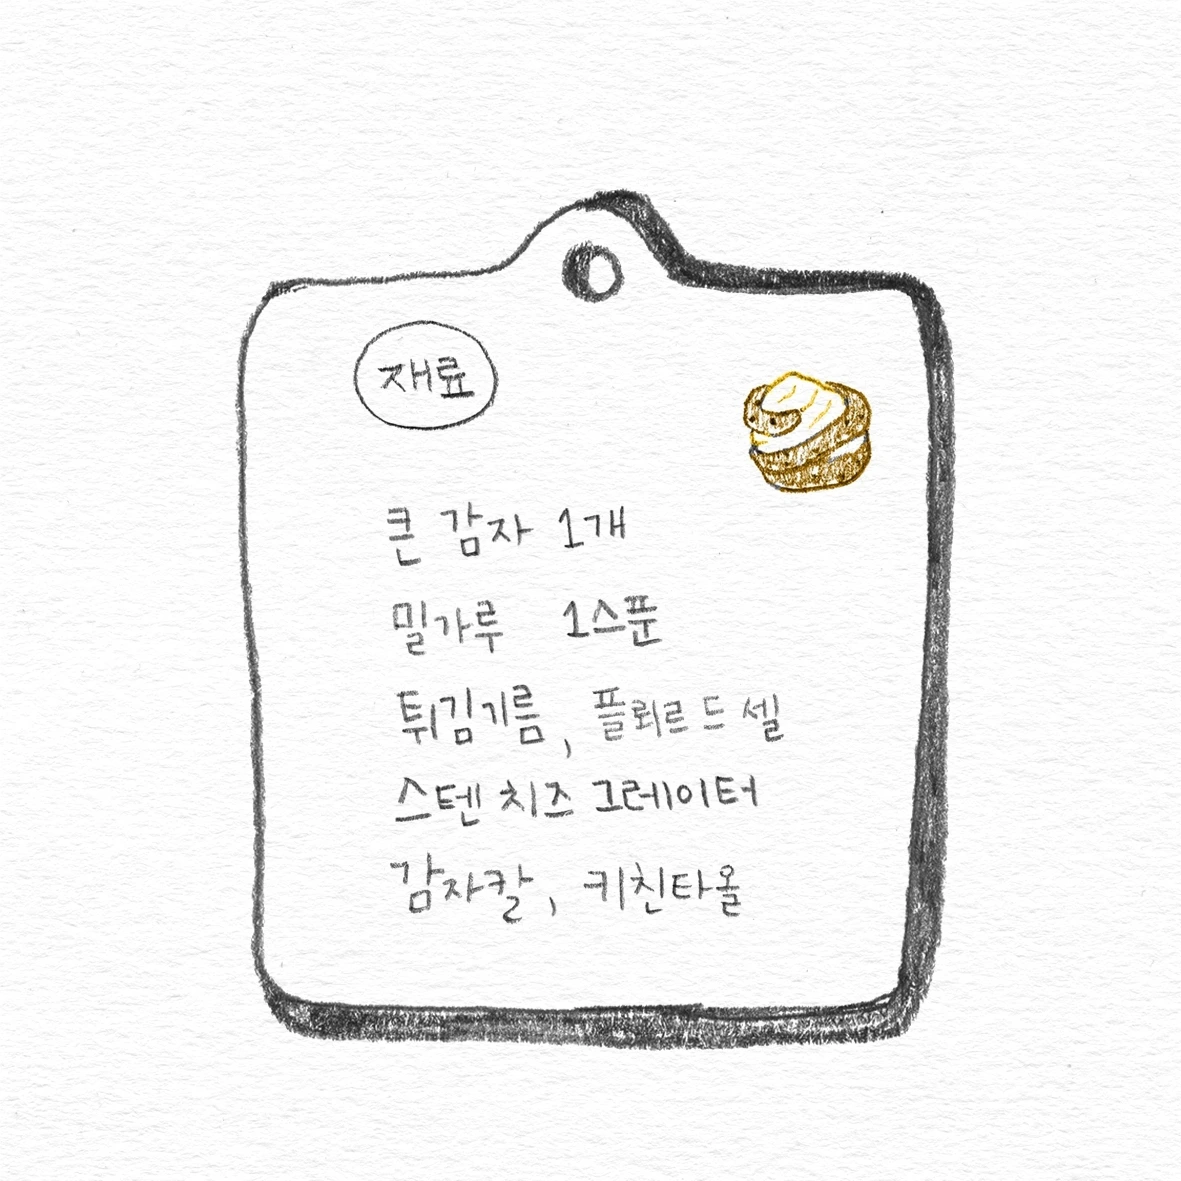 재료
큰 감자 1개
밀가루 1스푼
튀김기름, 플뢰르 드 셀
스텐 치즈 그레이터
감자칼, 키친타올